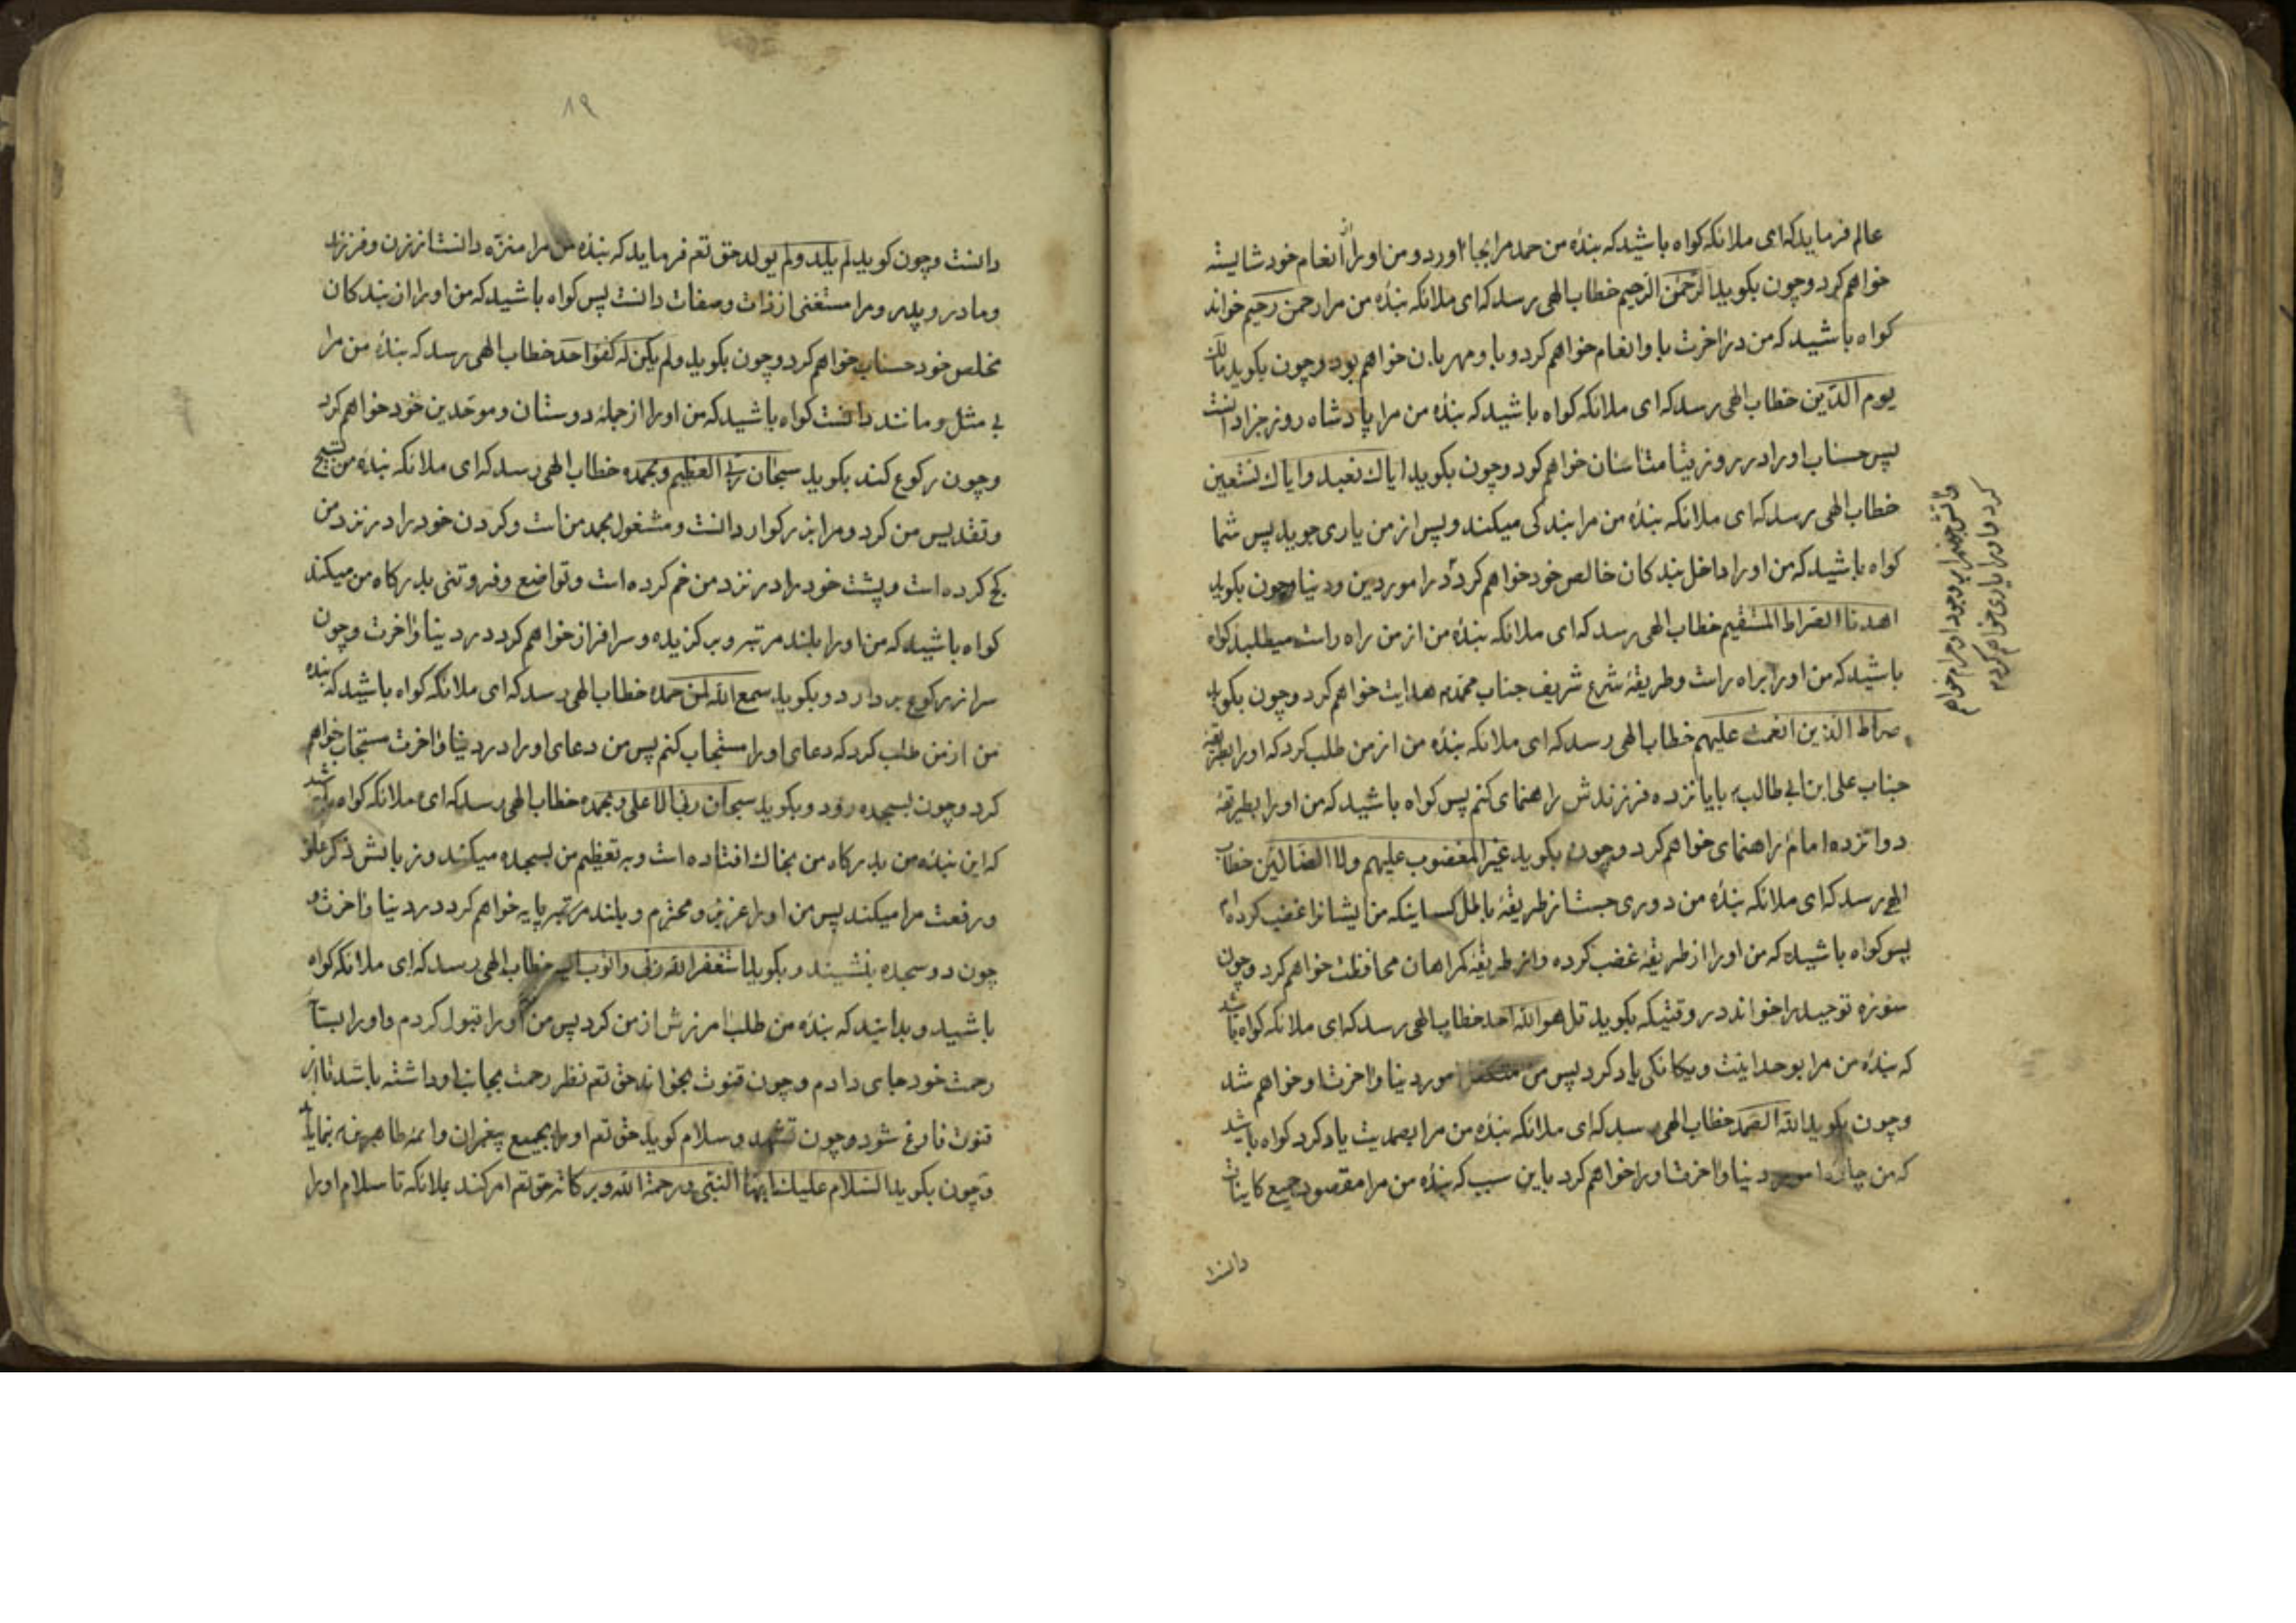 عالم فرماید که ای ملائکه کواه باشید که بنده من حمد مرا بجا آورد و من او را انعام خود شایسته
خواهم کرد و چون بکوید الرحمن الرحیم خطاب الهی رسد که ای ملائکه بنده من مرا رحمن رحیم خواند
کواه باشید که من در اخرت با و انعام خواهم کرد و با و مهربان خواهم بود و چون بکوید مالک
یوم الدین خطاب الهی رسد که ای ملائکه کواه باشید که بنده من مرا پادشاه روز جزا دانست
پس حساب او را در روز قیامت اسان خواهم کرد و چون بکوید ایاك نعبد و ایاك نستعین
خطاب الهی رسد که ای ملائکه بنده من مرا بندکی میکند و پس از من یاری جوید پس شما
کواه باشید که من او را داخل بندکان خالص خود خواهم کرد در امور دین و دنیا و چون بکوید
اهدنا الصراط المستقیم خطاب الهی رسد که ای ملائکه بنده من از من راه راست میطلبد کواه
باشید که من او را براه راست و طریقه شرع شریف جناب محمد هدایت خواهم کرد و چون بکوید
صراط الذین انعمت علیهم خطاب الهی رسد که ای ملائکه بنده من از من طلب کرد که او را بطریقه
جناب علی ابن ابی طالب با یازده فرزندش راهنمای کنم پس کواه باشید که من او را بطریقه
دوازده امام راهنمای خواهم کرد و چون بکوید غیر المغضوب علیهم ولا الضالین خطاب
الهی رسد که ای ملائکه بنده من دوری جست از طریقه باطل کساینکه من ایشانرا غضب کرده ام
پس کواه باشید که من او را از طریقه غضب کرده و از طریقه کمراهان محافظت خواهم کرد و چون
سوره توحید را خواند در وقتیکه بکوید قل هو الله احد خطاب الهی رسد که ای ملائکه کواه باشید
که بنده من مرا بوحدانیت و یکانکی یاد کرد پس من امور دینا و اخرت او خواهم شد
و چون بکوید الله الصمد خطاب الهی رسد که ای ملائکه بنده من مرا بصمدیت یاد کرد کواه باشید
که من دینا و اخرت او را خواهم کرد باین سبب که بنده من مرا مقصود جمیع کاینات
دانست
کرد و او را یاری خواهم کرد
۱۹
دانست و چون کوید لم یلد ولم یولد حق تعم فرماید که بنده من مرا منزه دانست از زن و فرزند
و مادر و پدر و مرا مستغنی از ذات و صفات دانست پس کواه باشید که من او را از بندکان
مخلص خود حساب خواهم کرد و چون بکوید ولم یکن له کفوا احد خطاب الهی رسد که بنده من مرا
بی مثل و مانند دانست کواه باشید که من او را از جمله دوستان و موحدین خود خواهم کرد
و چون رکوع کند بکوید سبحان ربی العظیم وبحمده خطاب الهی رسد که ای ملائکه بنده من تسبیح
و تقدیس من کرد و مرا بزرکوار دانست و مشغول بحمد من است و کردن خود را در نزد من
کج کرده است و پشت خود را در نزد من خم کرده است و تواضع و فروتنی بدرکاه من میکند
کواه باشید که من او را بلند مرتبه و برکزیده و سرافراز خواهم کرد در دینا و اخرت و چون
سر از رکوع بردارد و بکوید سمع الله لمن حمده خطاب الهی رسد که ای ملائکه کواه باشید که بنده
من از من طلب کرد که دعای او را مستجاب کنم پس من دعای او را در دینا و اخرت مستجاب خواهم
کرد و چون بسجده رود و بکوید سبحان ربی الاعلی وبحمده خطاب الهی رسد که ای ملائکه کواه باشید
که این بنده من بدرکاه من بخاك افتاده است و به تعظیم من بسجده میکند و زبانش ذکر علو
و رفعت مرا میکند پس من او را عزیز و محترم و بلند مرتبه پایه خواهم کرد در دینا و اخرت و
چون دو سجده بنشیند و بکوید استغفر الله ربی و اتوب الیه خطاب الهی رسد که ای ملائکه کواه
باشید و بدانید که بنده من طلب امرزش از من کرد پس من او را قبول کردم و او را
رحمت خود جای دادم و چون قنوت بخواند حق تعم نظر رحمت بجانب او داشته باشد تا از
قنوت فارغ شود و چون تشهد و سلام کوید حق تعم او را بجمیع پیغمبران و ائمه طاهرین بنماید
و چون بکوید السلام علیك ایها النبی ورحمة الله وبرکاته حق تعم امر کند بملائکه تا سلام او را